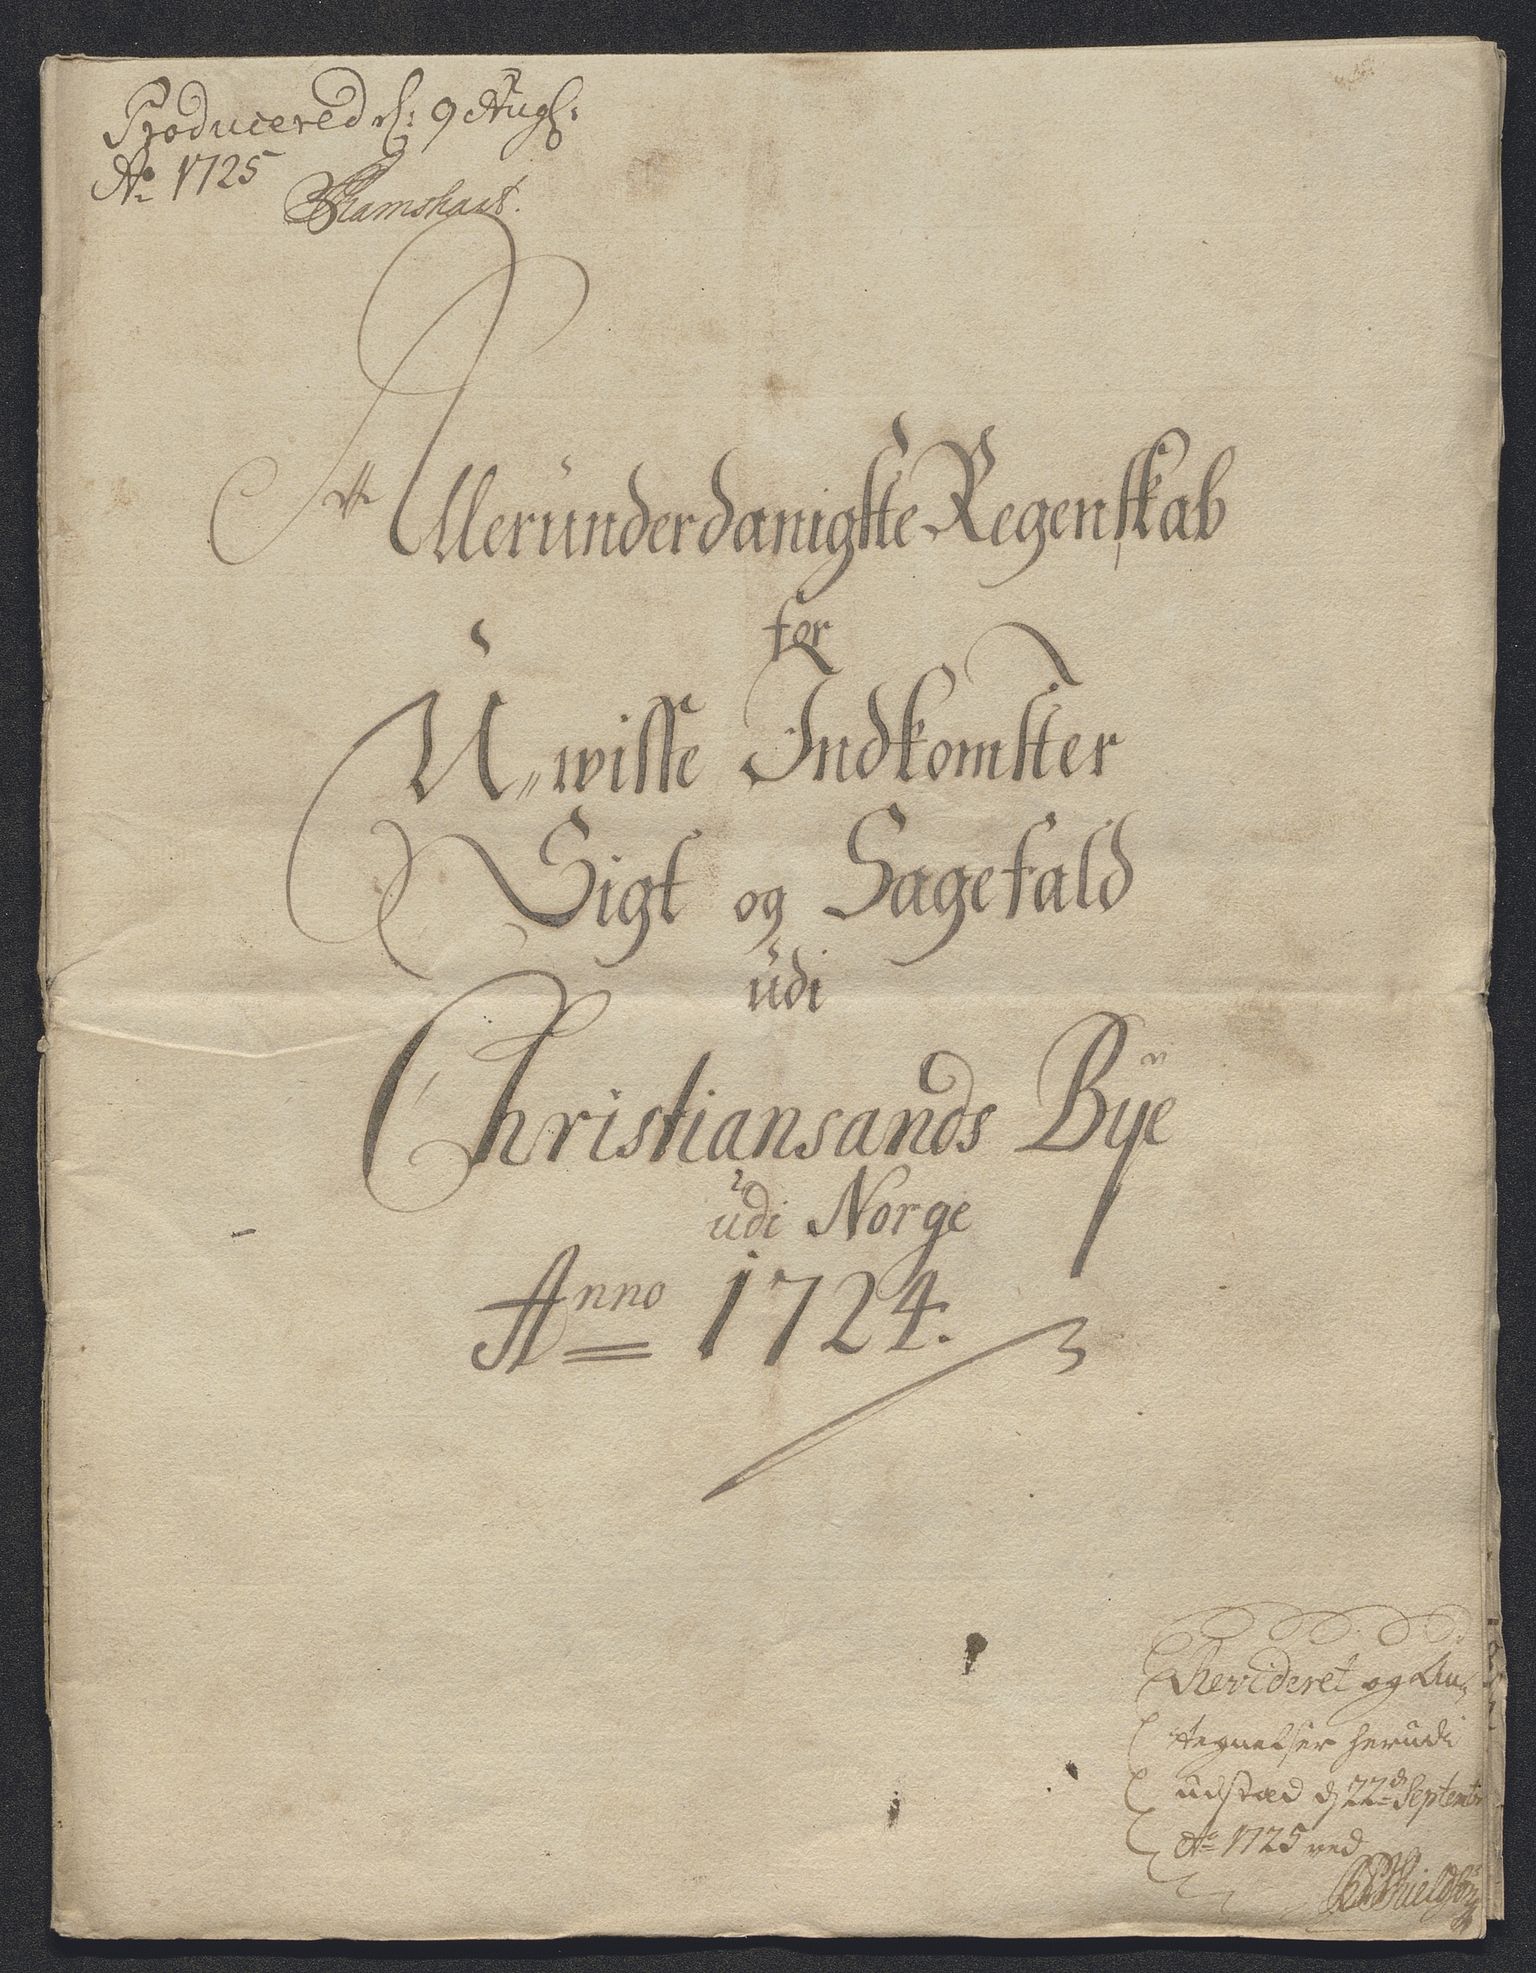 Producered d: 9 Augs:
Ao 1725
Alleründerdanigste Regenskab
for
U„wisse Indkomster
Sigt og Sagefald
üdi
Christiansands Bÿe
üdi Norge
Anno 1724.
Revideret og An-
tegnelser herudi
udstæd d 22de Septembr
Ao 1725 ved